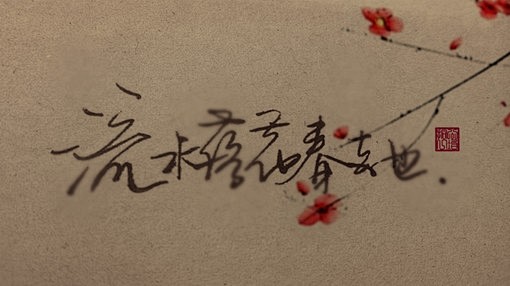 流水落花春去也.